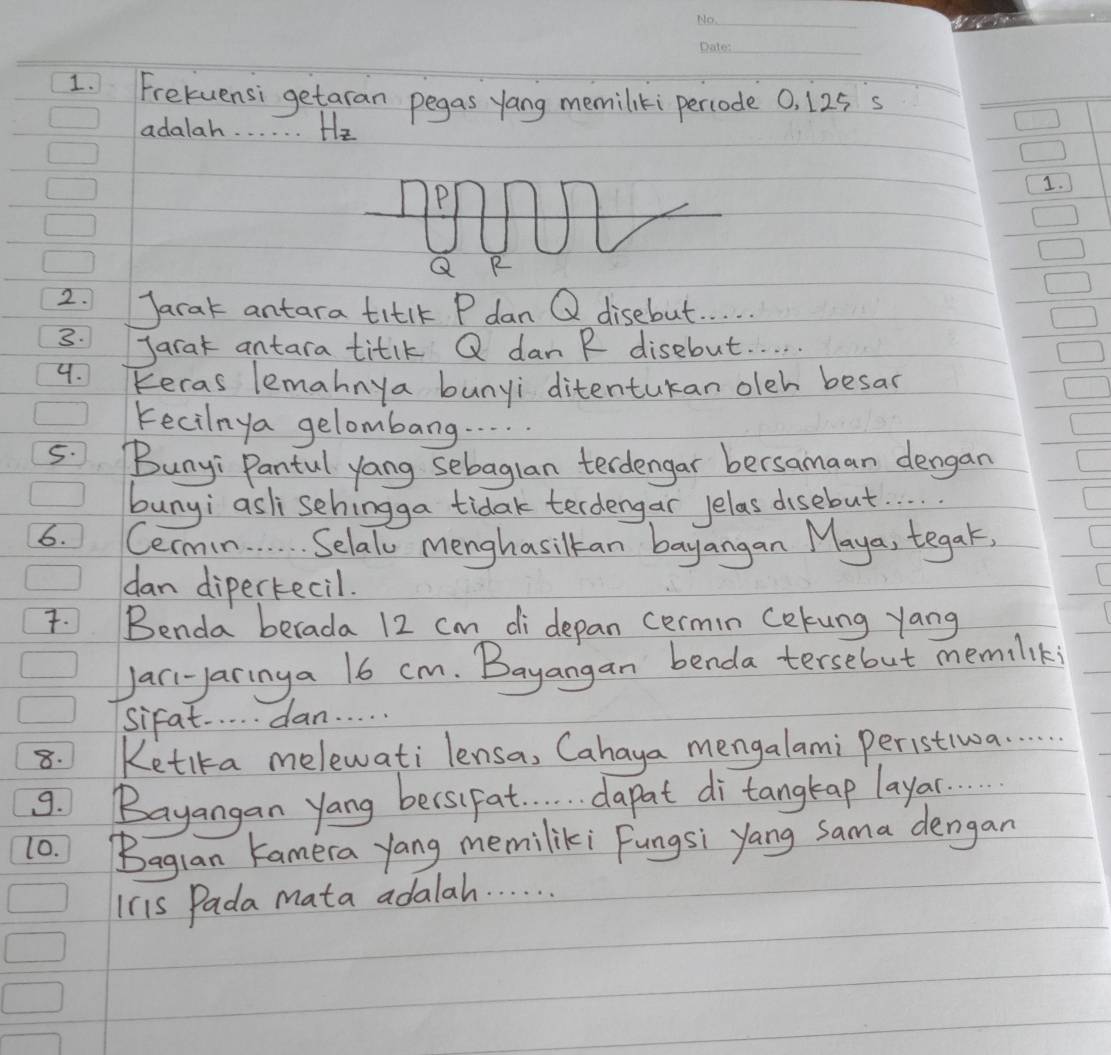 No.
Date:
1. Frekuensi getaran pegas yang memiliki periode 0,125 s
adalah...... Hz
P
Q R
2. Jarak antara titik P dan Q disebut.....
3. Jarak antara titik Q dan R disebut.....
4. Keras lemahnya bunyi ditentukan oleh besar
kecilnya gelombang.....
5. Bunyi Pantul yang sebagian terdengar bersamaan dengan
bunyi asli sehingga tidak terdengar jelas disebut......
6. Cermin...... Selalu menghasilkan bayangan Maya, tegak,
dan diperkecil.
7. Benda berada 12 cm di depan cermin cekung yang
jari-jarinya 16 cm. Bayangan benda tersebut memiliki
sifat..... dan.....
8. Ketika melewati lensa, Cahaya mengalami peristiwa......
9. Bayangan yang bersifat...... dapat di tangkap layar......
10. Bagian kamera yang memiliki Fungsi yang sama dengan
iris Pada mata adalah......
1.